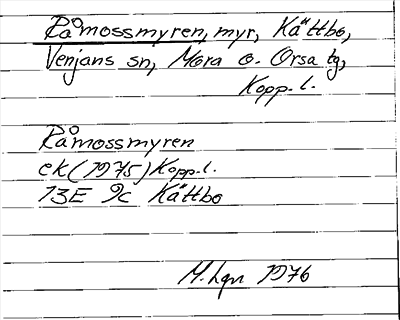 Råmossmyren, myr, Kättbo,
Venjans sn, Mora o. Orsa tg,
Kopp. l.
Råmossmyren
ek (1975) Kopp. l.
13E 9c Kättbo
M. hgn 1976